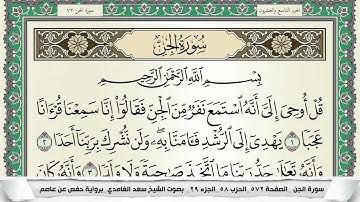 الجزء التاسع والعشرون
سورة الجن ٧٢
سُورَةُ الجِنِّ
بِسْمِ اللَّهِ الرَّحْمَٰنِ الرَّحِيمِ
قُلْ أُوحِيَ إِلَيَّ أَنَّهُ ٱسْتَمَعَ نَفَرٌ مِّنَ ٱلْجِنِّ فَقَالُوٓا۟ إِنَّا سَمِعْنَا قُرْءَانًا
عَجَبًا ١ يَهْدِىٓ إِلَى ٱلرُّشْدِ فَـَٔامَنَّا بِهِۦ ۖ وَلَن نُّشْرِكَ بِرَبِّنَآ أَحَدًا ٢
وَأَنَّهُۥ تَعَٰلَىٰ جَدُّ رَبِّنَا مَا ٱتَّخَذَ صَٰحِبَةً وَلَا وَلَدًا ٣ وَأَنَّهُۥ كَانَ
سورة الجن _ الصفحة ٥٧٢_ الحزب ٥٨_ الجزء ٢٩_ بصوت الشيخ سعد الغامدي_برواية حفص عن عاصم